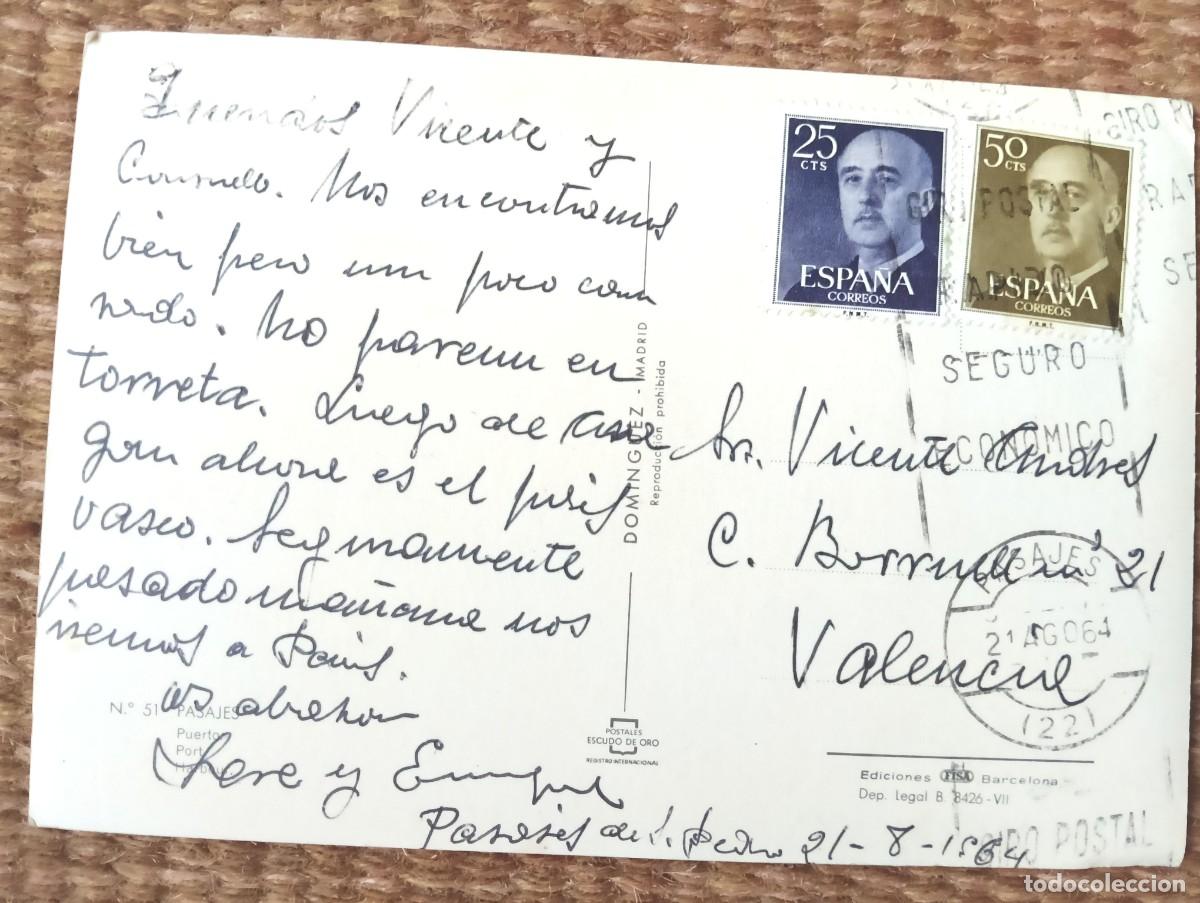 Queridos Vicente y
Consuelo. Nos encontramos
bien pero un poco can
sado. No paren en
Torreta. Luego de
gon ahora es el país
vasco. Seguramente
pasado mañana nos
iremos a París.
os abrazan
y
Pasajes de S. Pedro 21-8-1964
N.º 51 PASAJES
Puerto
Port
Harbour
DOMINGUEZ - MADRID
Reproducción prohibida
POSTALES
ESCUDO DE ORO
REGISTRO INTERNACIONAL
25
CTS
ESPAÑA
CORREOS
F.N.M.T.
50
CTS
ESPAÑA
CORREOS
F.N.M.T.
GIRO POSTAL
RAPIDO
SEGURO
ECONOMICO
Sr. Vicente Andres
C. 21
Valencia
PASAJES
21 AGO 64
(22)
Ediciones FISA Barcelona
Dep. Legal B. 8426-VII
GIRO POSTAL
todocoleccion